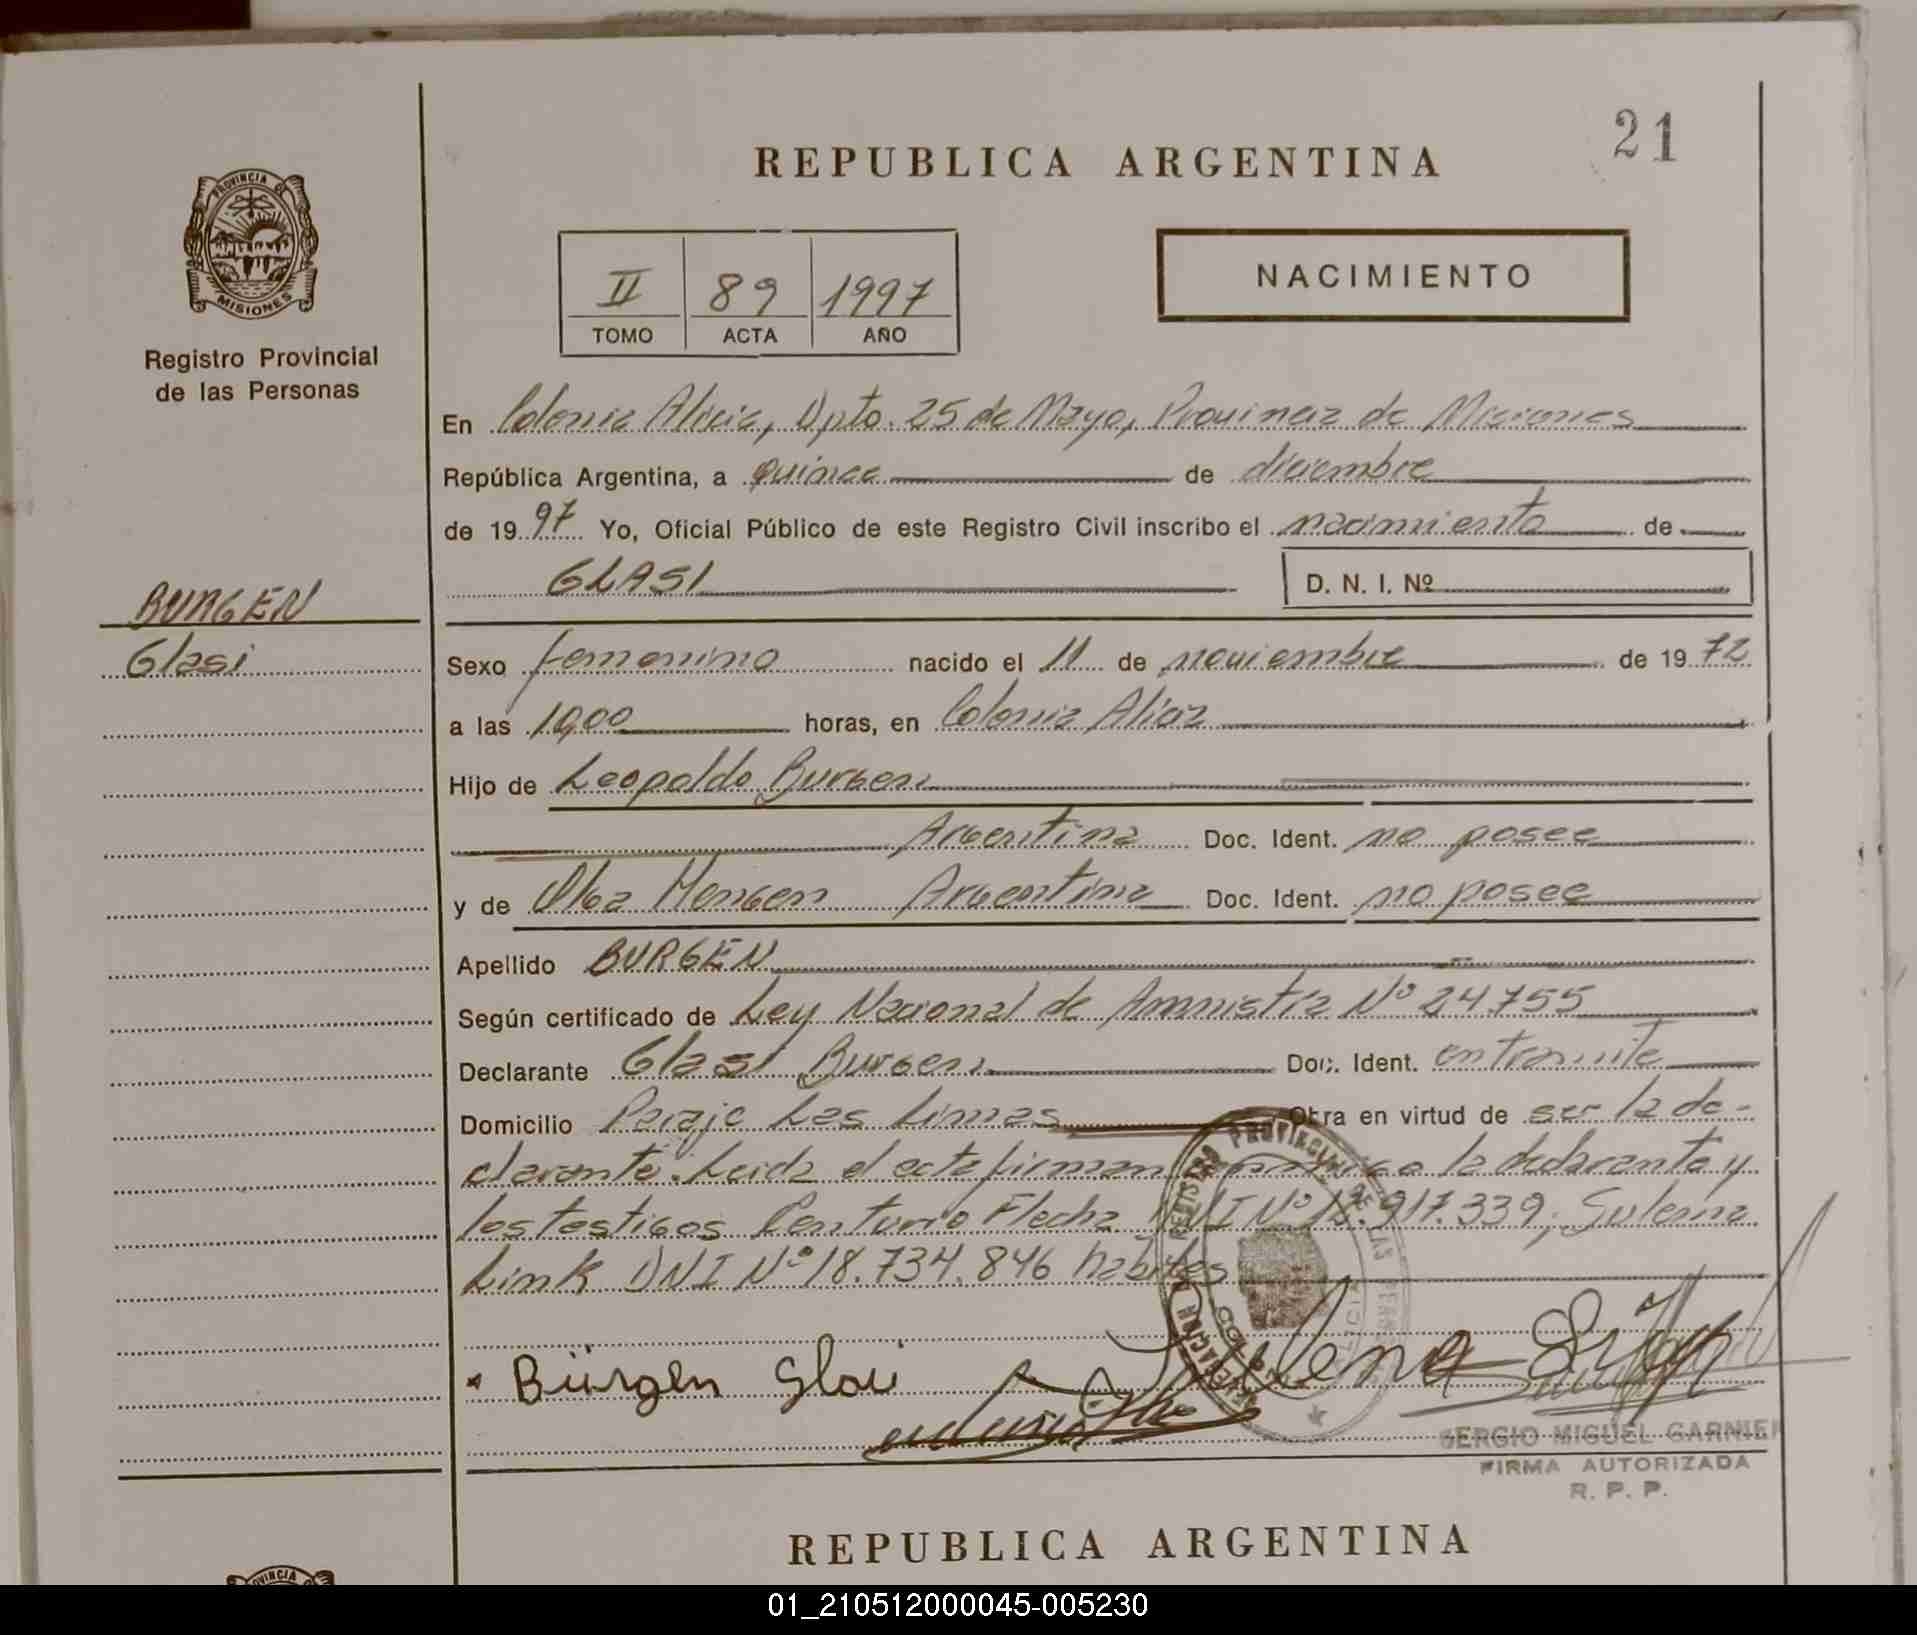 21
REPUBLICA ARGENTINA
PROVINCIA DE
MISIONES
Registro Provincial
de las Personas
II 89 1997
TOMO ACTA AÑO
NACIMIENTO
En Colonia Alicia, Dpto. 25 de Mayo, Provincia de Misiones
República Argentina, a quince de diciembre
de 1997 Yo, Oficial Público de este Registro Civil inscribo el nacimiento de
GLASI D. N. I. Nº
BURGEN
Glasi
Sexo femenino nacido el 11 de noviembre de 1972
a las 10,00 horas, en Colonia Alicia
Hijo de Leopoldo Burgen
Argentina Doc. Ident. no posee
y de Olga Hengen Argentina Doc. Ident. no posee
Apellido BURGEN
Según certificado de Ley Nacional de Amnistía Nº 24.755
Declarante Glasi Burgen Doc. Ident. en tramite
Domicilio Paraje Las Limas Obra en virtud de ser la de-
clarante. Leida el acta firman conmigo la declarante y
los testigos Centurio Flecha DNI Nº 917.339; Sulema
Link DNI Nº 18.734.846 habiles
Bürgen Glasi
SERGIO MIGUEL GARNIER
FIRMA AUTORIZADA
R. P. P.
REPUBLICA ARGENTINA
01_210512000045-005230